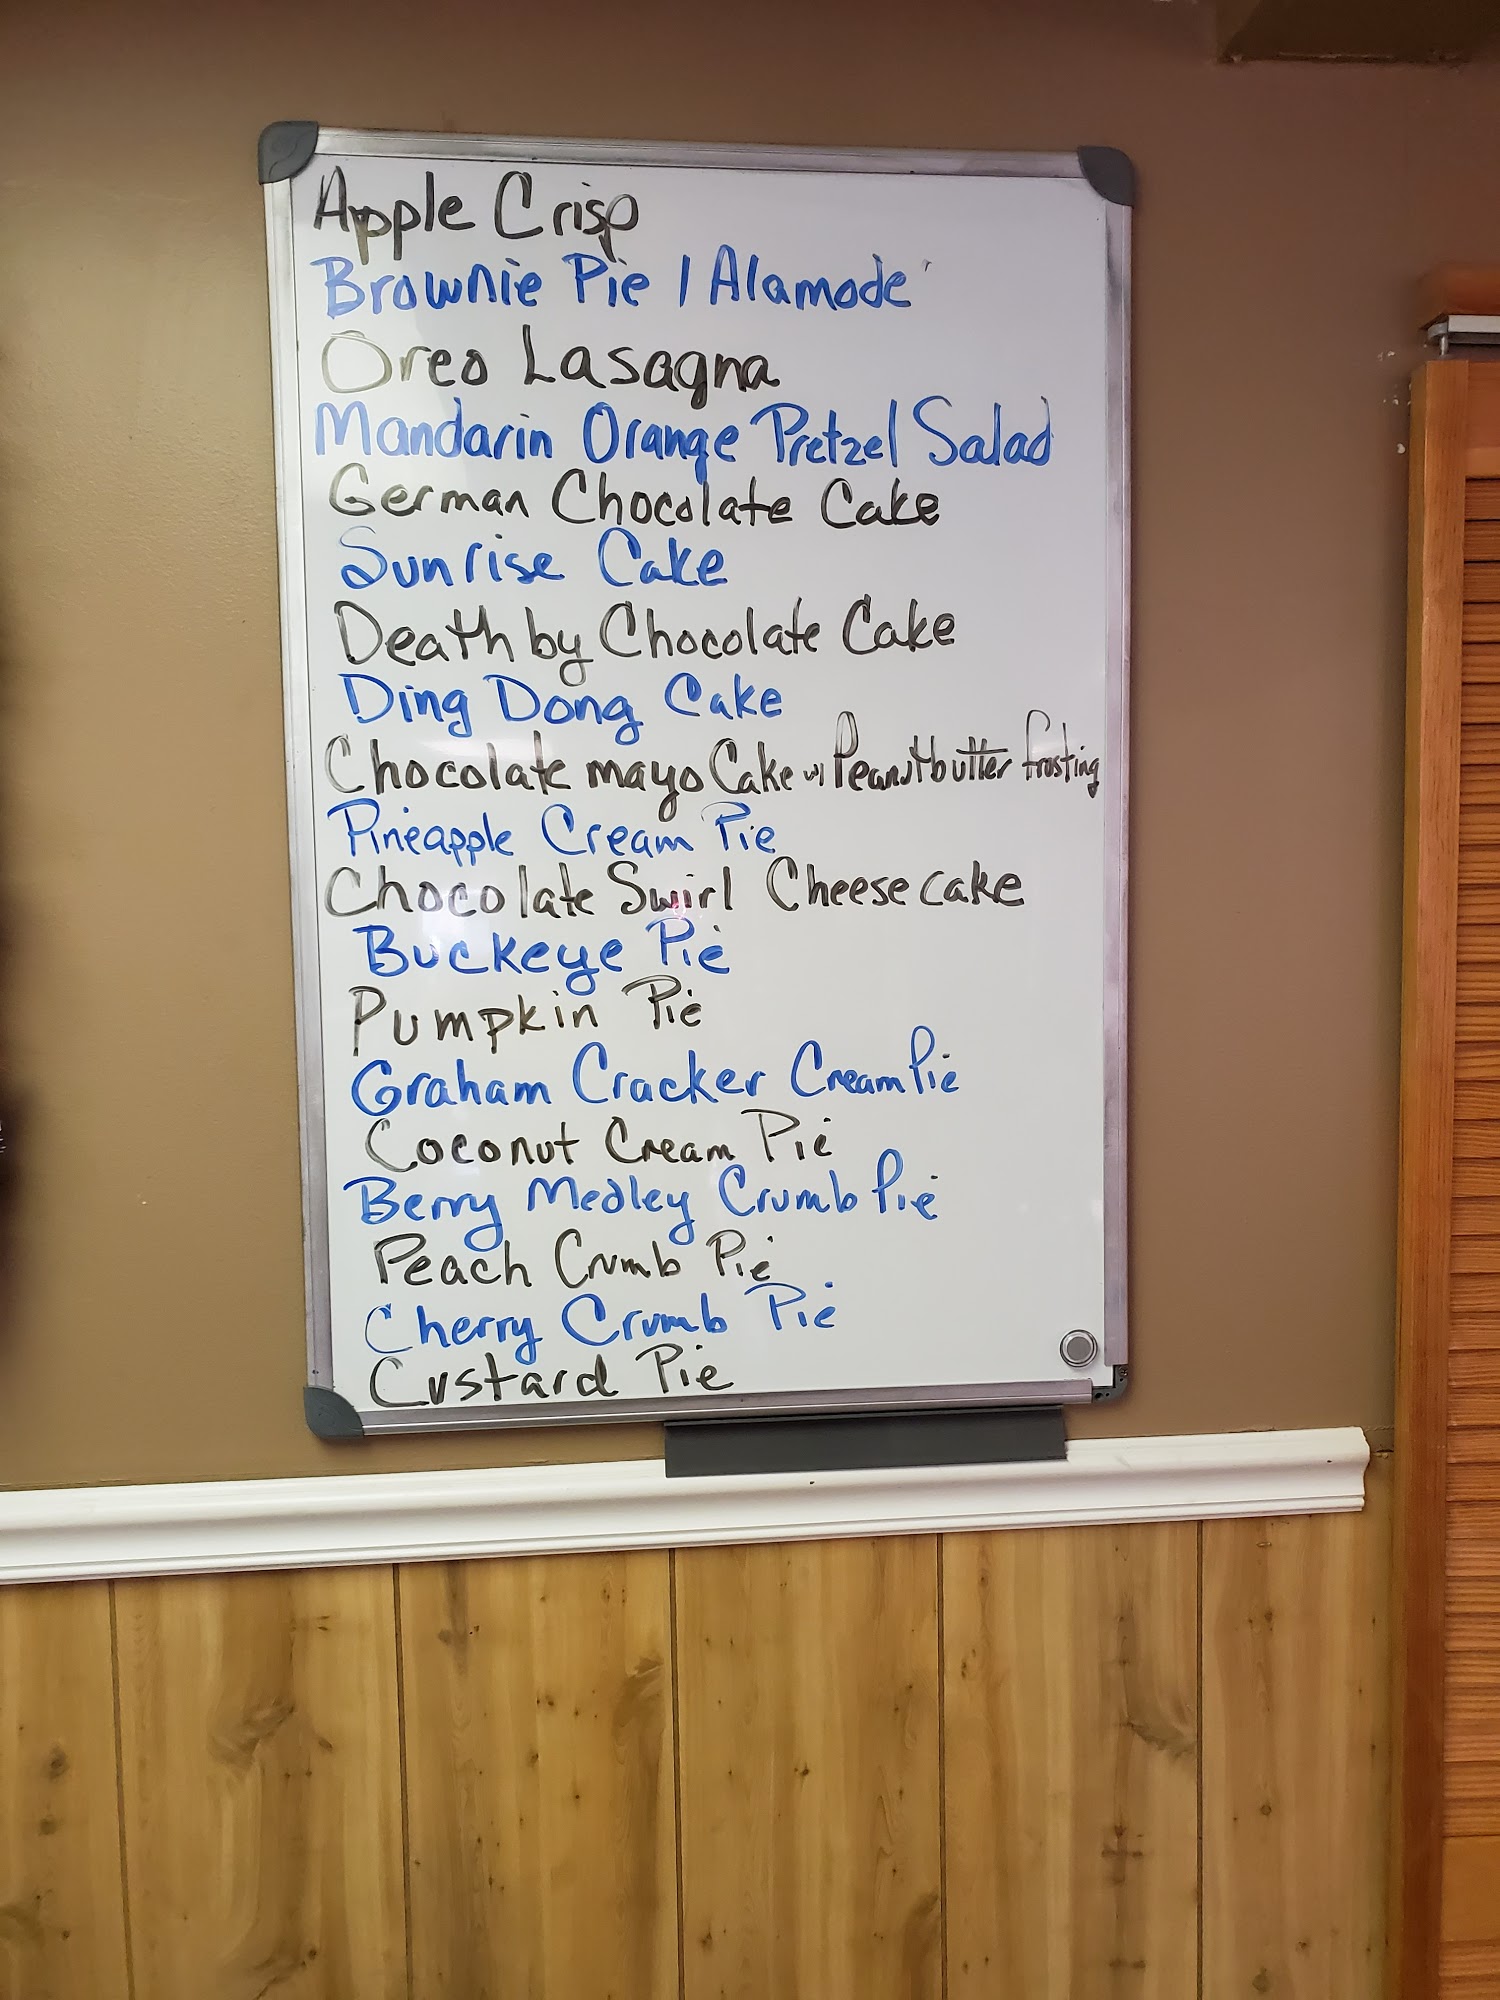 Apple Crisp
Brownie Pie / Alamode
Oreo Lasagna
Mandarin Orange Pretzel Salad
German Chocolate Cake
Sunrise Cake
Death by Chocolate Cake
Ding Dong Cake
Chocolate mayo Cake w/ Peanutbutter frosting
Pineapple Cream Pie
Chocolate Swirl Cheesecake
Buckeye Pie
Pumpkin Pie
Graham Cracker Cream Pie
Coconut Cream Pie
Berry Medley Crumb Pie
Peach Crumb Pie
Cherry Crumb Pie
Custard Pie